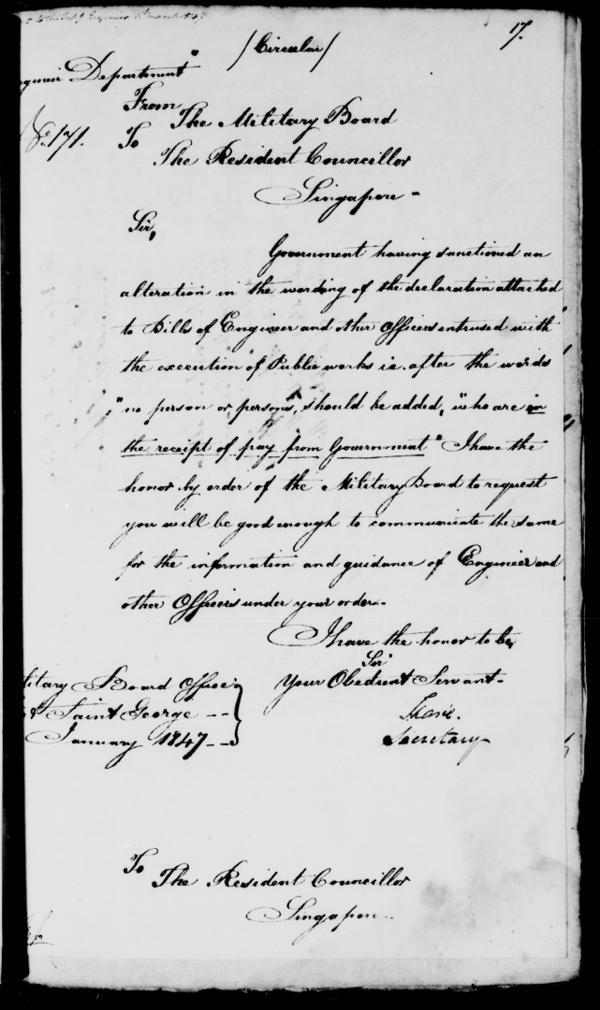 17.
/Circular/
Department"
From
The Military Board
No. 171. To
The Resident Councillor
Singapore -
Sir,
Government having sanctioned an
alteration in the wording of the declaration attached
to Bills of Engineer and other Officers intrused with
the execution of Public works i.e. after the words
"no person or persons, should be added, "who are in
the receipt of pay from Government" I have the
honor by order of the Military Board to request
you will be good enough to communicate the same
for the information and guidance of Engineer and
other Officers under your order.-
I have the honor to be,
Sir
litary Board Office Your Obedient Servant.-
Saint George ---
January 1847 -- Secretary
To
The Resident Councillor
Singapore.-